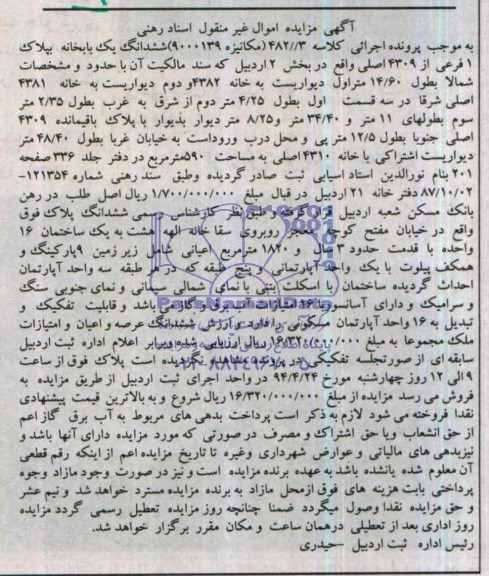 آگهی مزایده اموال غیر منقول اسناد رهنی
به موجب پرونده اجرائی کلاسه ۴۸۲/۳ (مکانیزه ۹۰۰۰۱۳۹) ششدانگ یک بابخانه بپلاک
۱ فرعی از ۴۳۰۹ اصلی واقع در بخش ۲ اردبیل که سند مالکیت آن با حدود و مشخصات
شمالا بطول ۱۴/۶۰ متر اول دیواریست به خانه ۴۳۸۲ و دوم دیواریست به خانه ۴۳۸۱
اصلی شرقا در سه قسمت اول بطول ۴/۲۵ متر دوم از شرق به غرب بطول ۲/۳۵ متر
سوم بطولهای ۱۱ متر و ۳۴/۴۰ متر و ۸/۲۵ متر دیوار بدیوار با پلاک باقیمانده ۴۳۰۹
اصلی جنوبا بطول ۱۲/۵ متر پی و محل درب ورودست به خیابان غربا بطول ۴۸/۴۰ متر
دیواریست اشتراکی با خانه ۴۳۱۰ اصلی به مساحت ۵۹۰ مترمربع در دفتر جلد ۳۳۶ صفحه
۲۰۱ بنام نورالدین استاد اسیابی ثبت صادر گردیده وطبق سند رهنی شماره ۱۲۱۳۵۴-
۸۷/۱۰/۰۲ دفتر خانه ۲۱ اردبیل در قبال مبلغ ۱/۷۰۰/۰۰۰/۰۰۰ ریال اصل طلب در رهن
بانک مسکن شعبه اردبیل قرار گرفته و طبق نظر کارشناس رسمی ششدانگ پلاک فوق
واقع در خیابان مفتح کوچه معجز روبروی سقا خانه الهه بهشت به یک ساختمان ۱۶
واحده با قدمت حدود ۳ سال و ۱۸۲۰ مترمربع اعیانی شامل زیر زمین ۹ پارکینگ و
همکف پیلوت با یک واحد آپارتمانی و پنج طبقه که در هر طبقه سه واحد آپارتمان
احداث گردیده ساختمان با اسکلت بتنی با نمای شمالی سیمانی و نمای جنوبی سنگ
و سرامیک و دارای آسانسور ۱۶ امتیازات آب برق و گاز می باشد و قابلیت تفکیک و
تبدیل به ۱۶ واحد آپارتمان مسکونی را دارد و ارزش ششدانگ عرصه و اعیان و امتیازات
ملک مجموعا به مبلغ ۱۶/۳۲۰/۰۰۰/۰۰۰ ریال ارزیابی شده و بنابر اعلام اداره ثبت اردبیل
سابقه ای از صورتجلسه تفکیکی در پرونده مشاهده نگردیده است پلاک فوق از ساعت
۹ الی ۱۲ روز چهارشنبه مورخ ۹۴/۴/۲۴ در واحد اجرای ثبت اردبیل از طریق مزایده به
فروش می رسد مزایده از مبلغ ۱۶/۳۲۰/۰۰۰/۰۰۰ ریال شروع و به بالاترین قیمت پیشنهادی
نقدا فروخته می شود لازم به ذکر است پرداخت بدهی های مربوط به آب برق گاز اعم
از حق انشعاب ویا حق اشتراک و مصرف در صورتی که مورد مزایده دارای آنها باشد و
نیز بدهی های مالیاتی و عوارض شهرداری و غیره تا تاریخ مزایده اعم از اینکه رقم قطعی
آن معلوم شده یا نشده باشد به عهده برنده مزایده است و نیز در صورت وجود مازاد وجوه
پرداختی بابت هزینه های فوق از محل مازاد به برنده مزایده مسترد خواهد شد و نیم عشر
و حق مزایده نقدا وصول میگردد ضمنا چنانچه روز مزایده تعطیل رسمی گردد مزایده
روز اداری بعد از تعطیلی در همان ساعت و مکان مقرر برگزار خواهد شد.
رئیس اداره ثبت اردبیل -حیدری